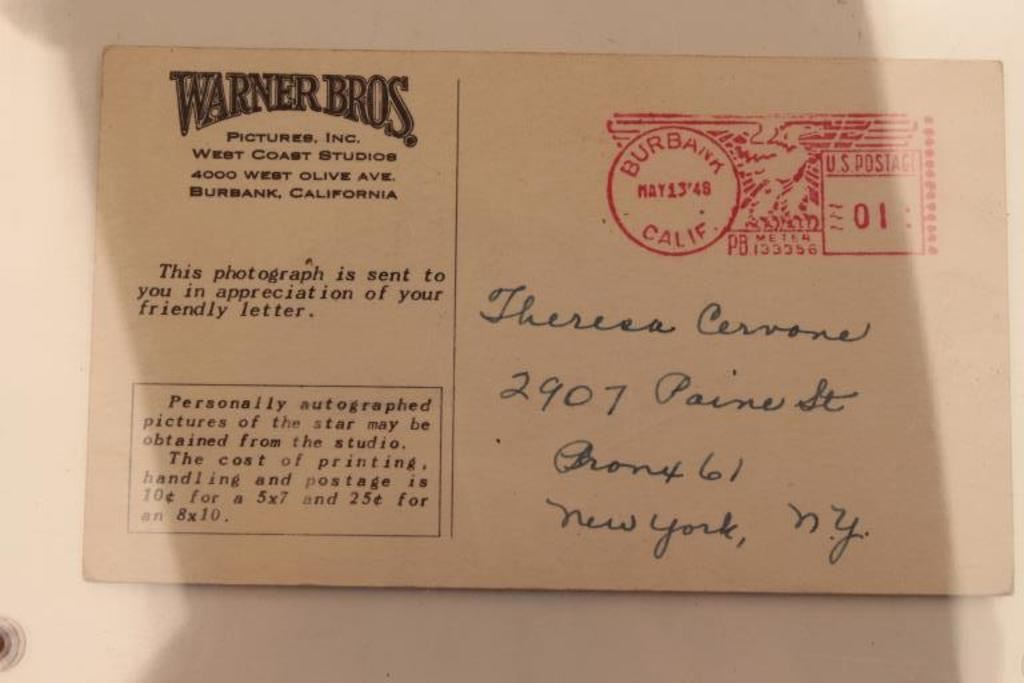 WARNER BROS.
PICTURES, INC.
WEST COAST STUDIOS
4000 WEST OLIVE AVE.
BURBANK, CALIFORNIA
This photograph is sent to
you in appreciation of your
friendly letter.
Personally autographed
pictures of the star may be
obtained from the studio.
The cost of printing,
handling and postage is
10¢ for a 5x7 and 25¢ for
an 8x10.
BURBANK
MAY 13 '48
CALIF.
U.S. POSTAGE
01
PB METER
133356
Theresa Cervone
2907 Paine St
Bronx 61
New York, N.Y.